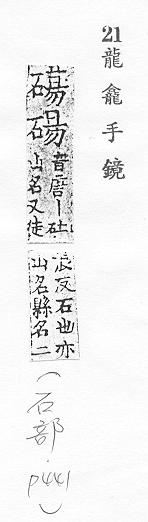 21 龍龕手鏡
碭 音唐丨
山名又徒
浪反石也亦
山名縣名二
（石部．p441）